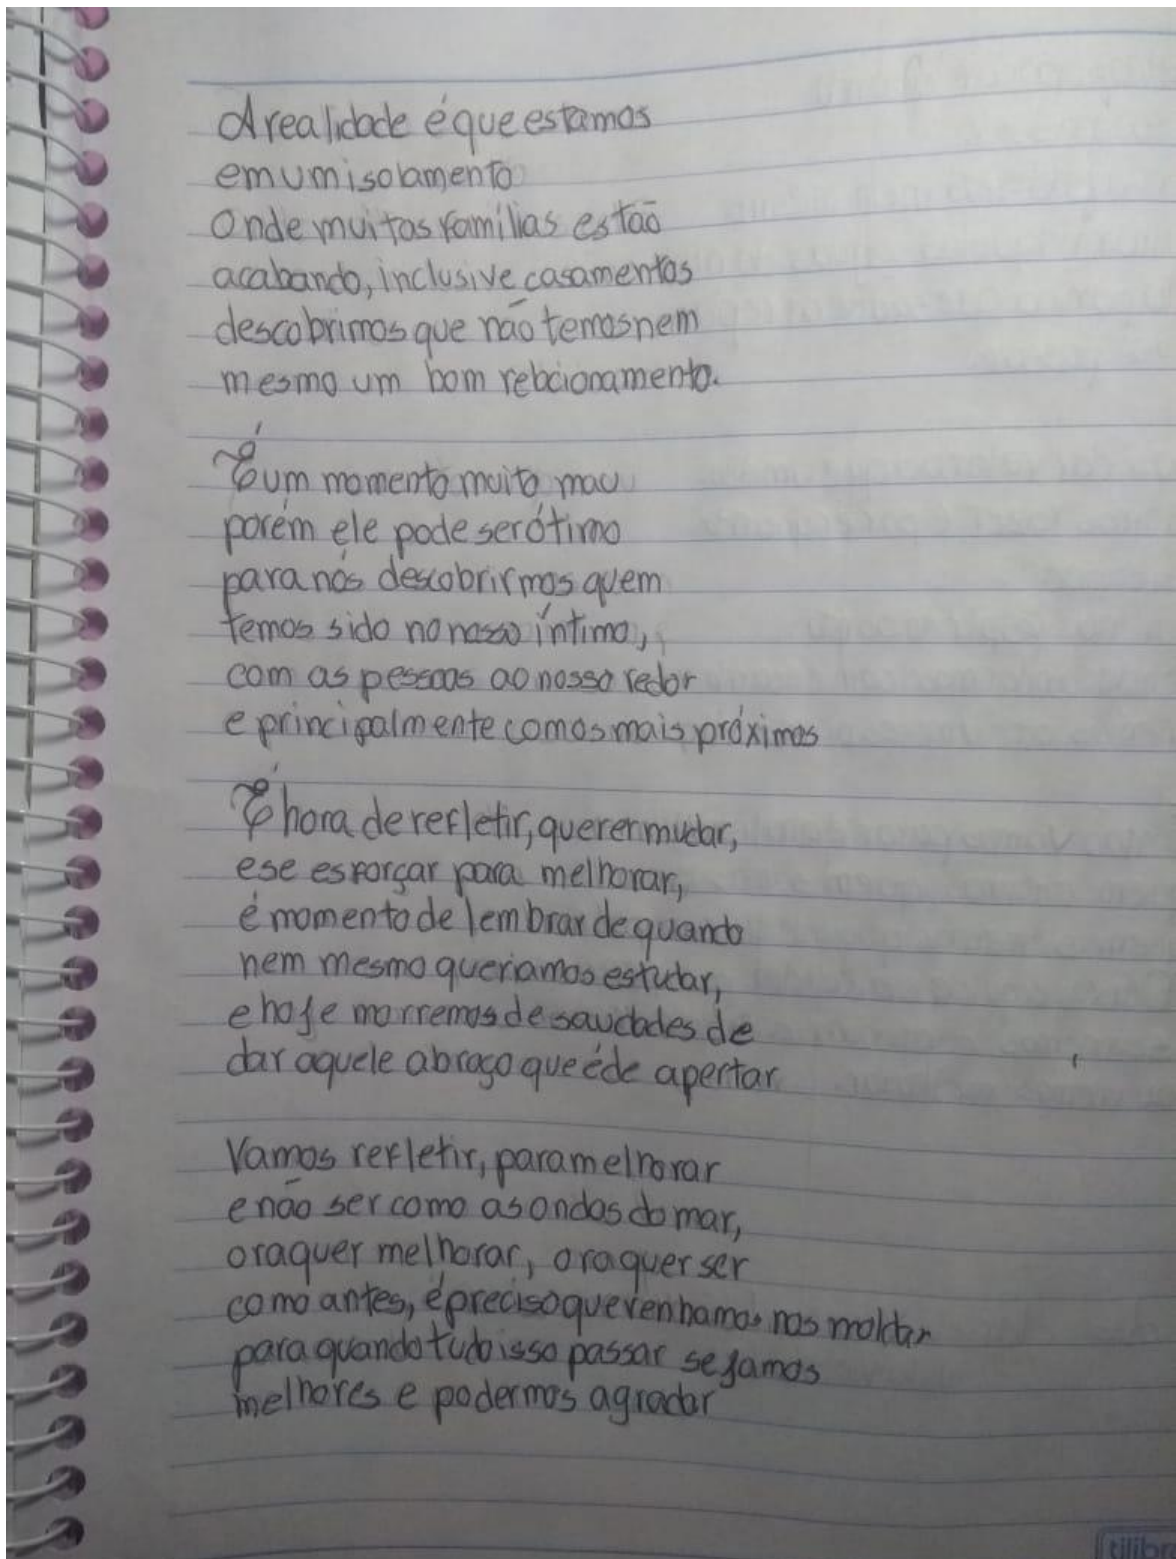 A realidade é que estamos
em um isolamento
Onde muitas famílias estão
acabando, inclusive casamentos
descobrimos que não temos nem
mesmo um bom relacionamento.
É um momento muito mau
porém ele pode ser ótimo
para nós descobrirmos quem
temos sido no nosso íntimo,
com as pessoas ao nosso redor
e principalmente com os mais próximos
É hora de refletir, querer mudar,
e se esforçar para melhorar,
é momento de lembrar de quando
nem mesmo queriamos estudar,
e hoje morremos de saudades de
dar aquele abraço que é de apertar
Vamos refletir, para melhorar
e não ser como as ondas do mar,
ora quer melhorar, ora quer ser
como antes, é preciso que venhamos nos moldar
para quando tudo isso passar sejamos
melhores e podermos agradar